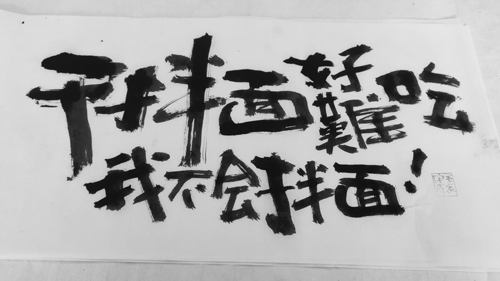 干拌面好難吃
我不会拌面!